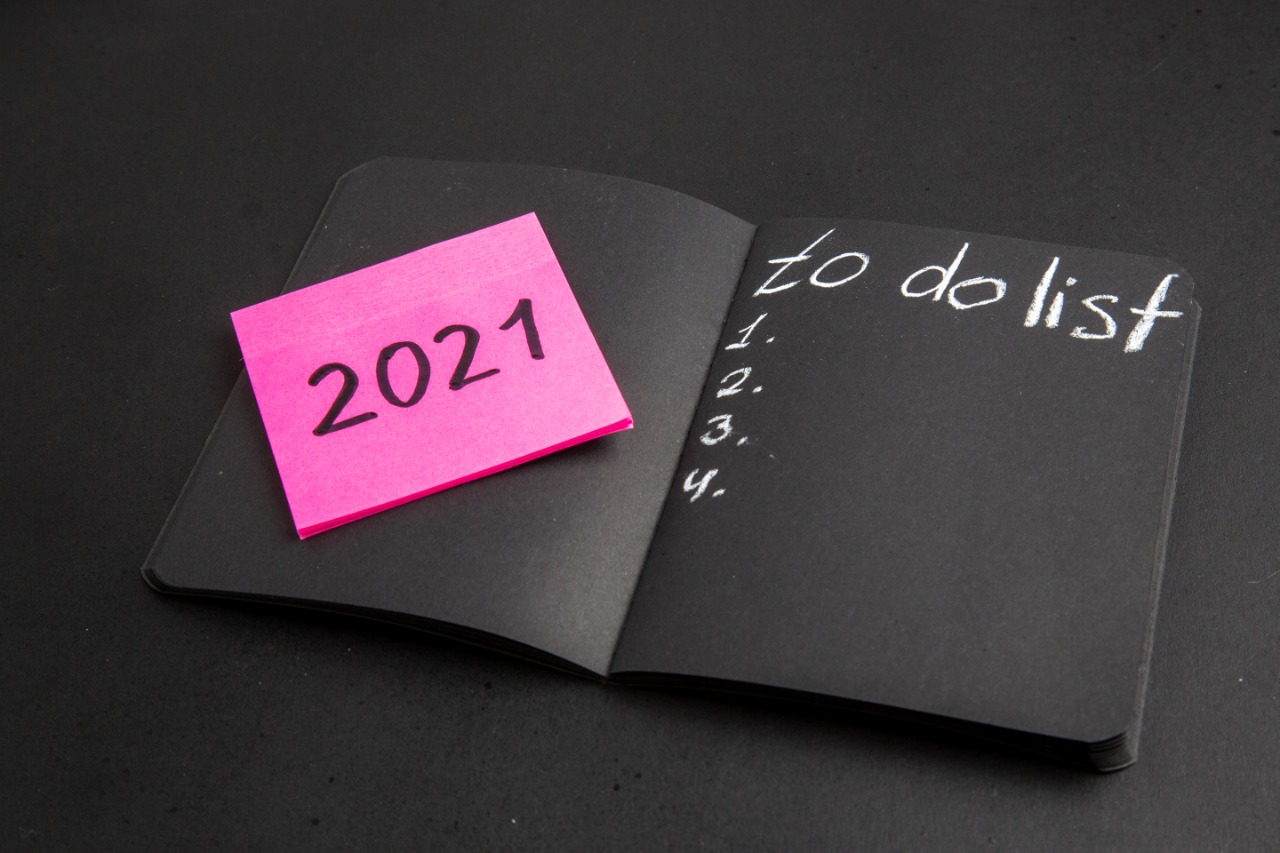 2021
to do list
1.
2.
3.
4.